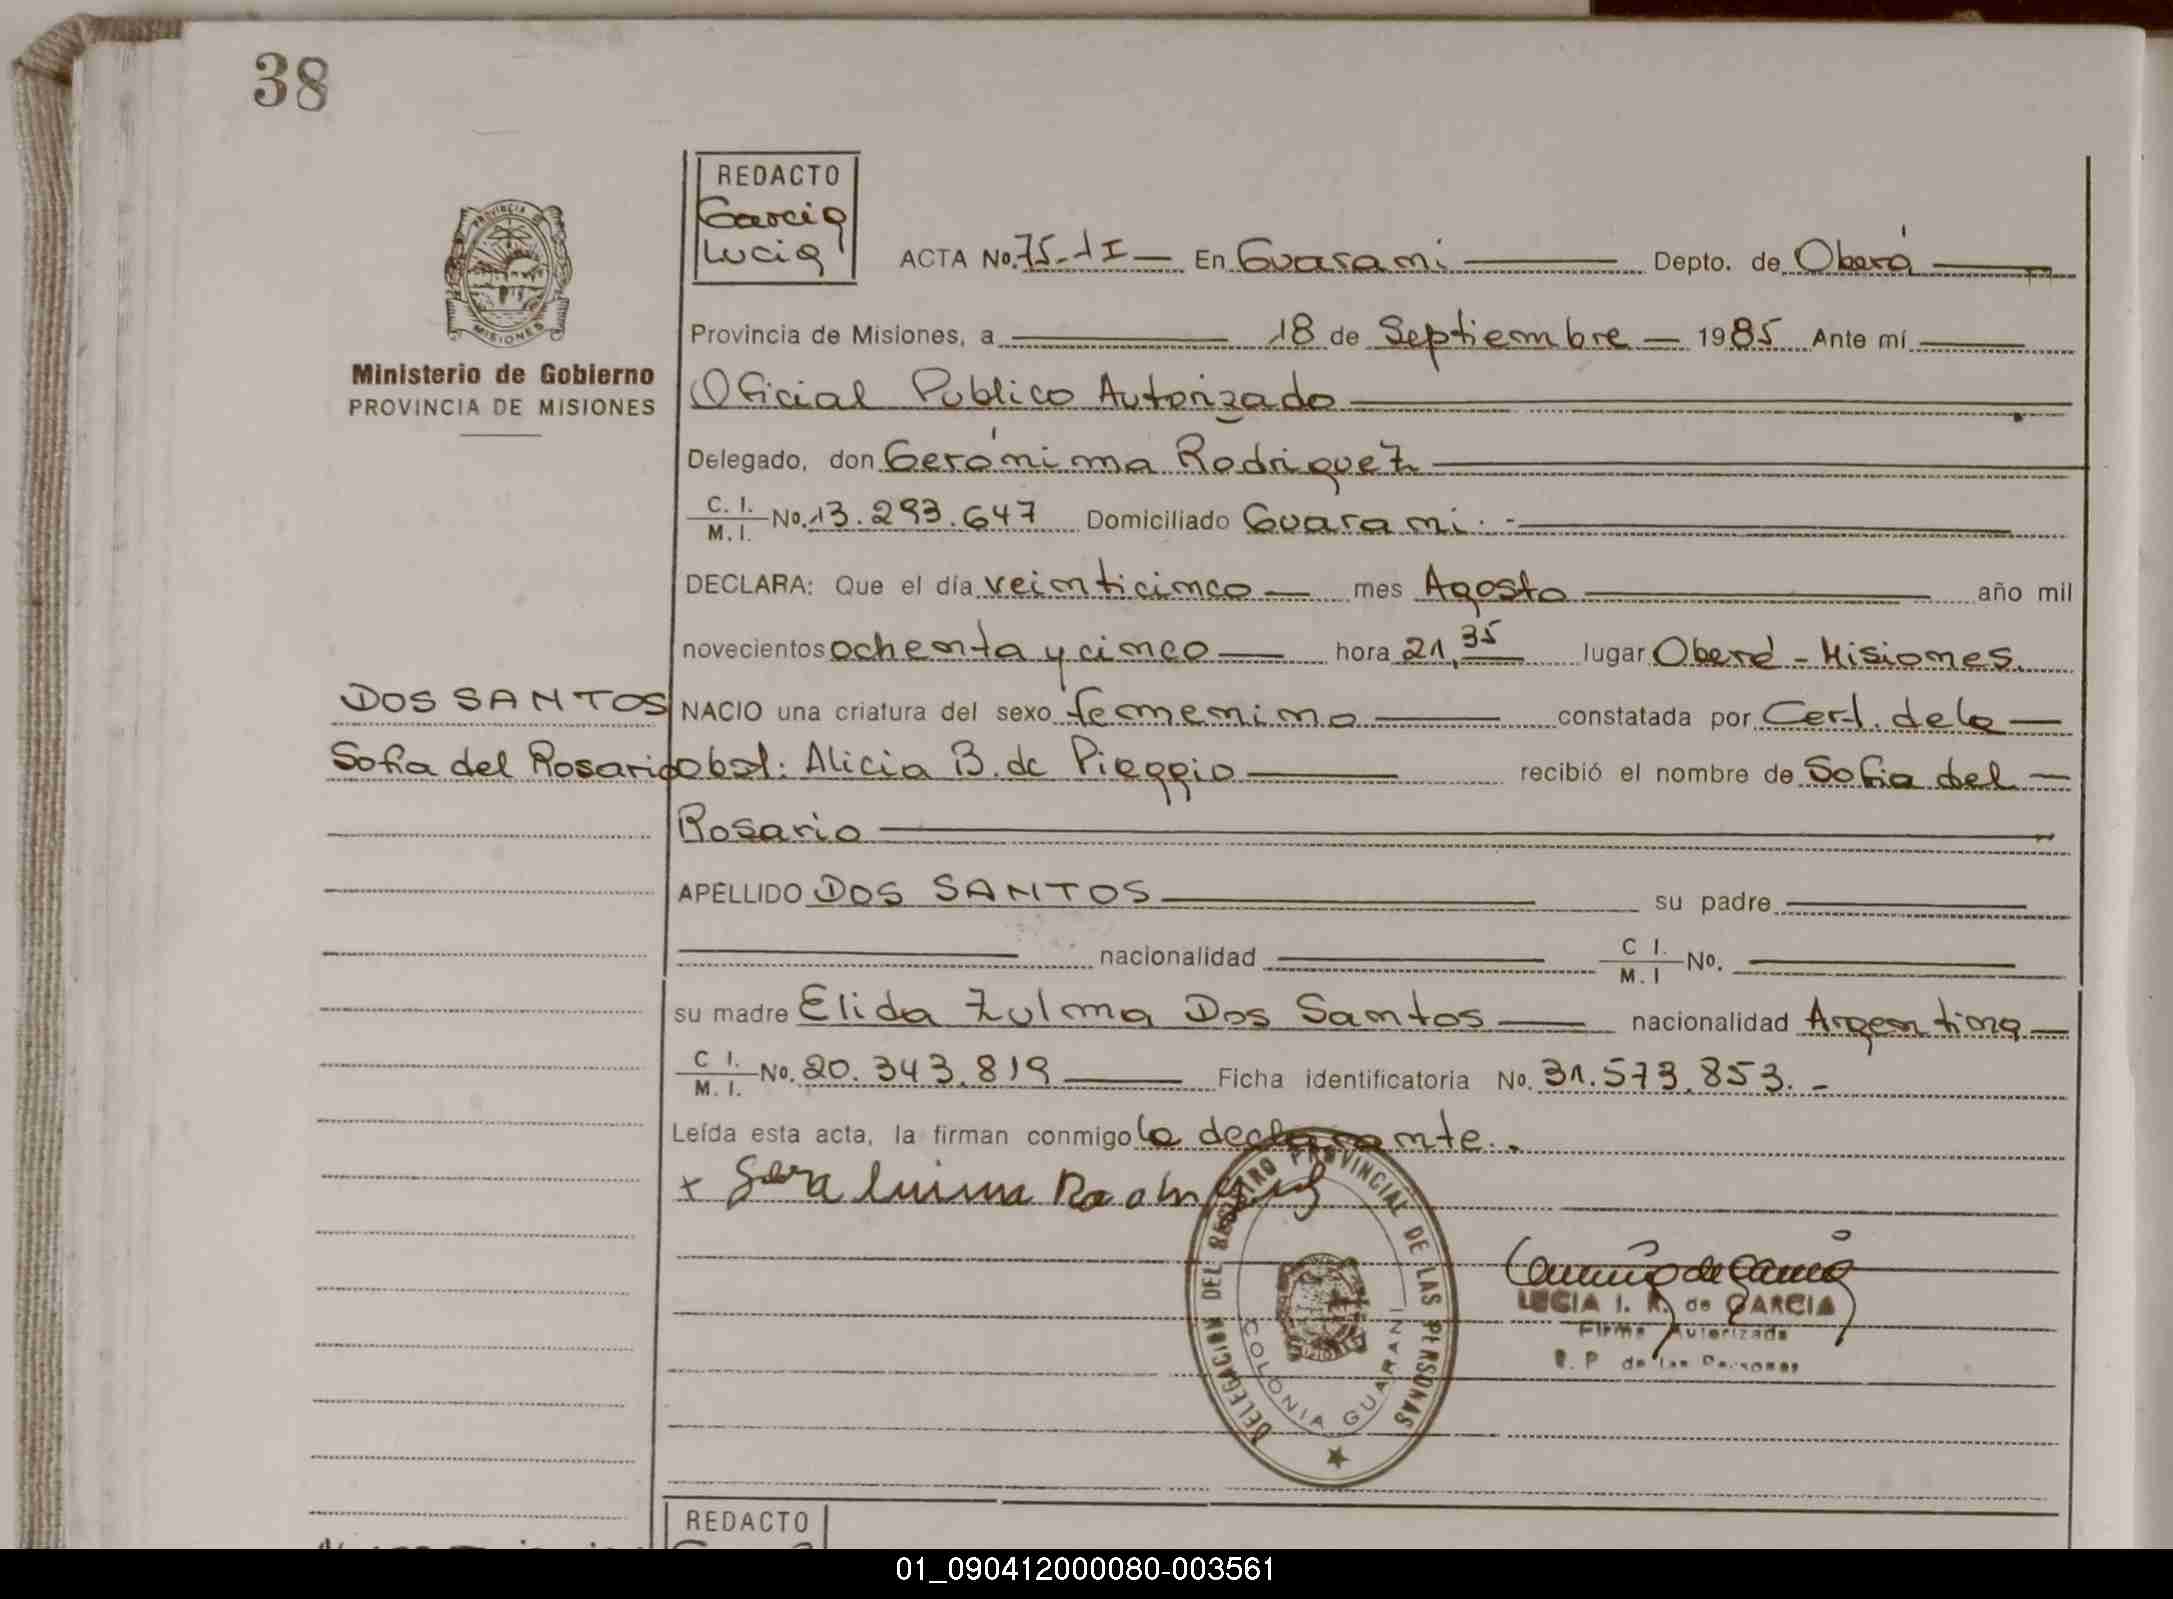 38
REDACTO
Garcia
Lucia
ACTA No. 75-1I — En Guarani — Depto. de Oberá —
PROVINCIA DE MISIONES
Ministerio de Gobierno
PROVINCIA DE MISIONES
Provincia de Misiones, a — 18 de Septiembre — 1985 Ante mí —
Oficial Publico Autorizado —
Delegado, don Gerónima Rodriguez —
C. I. / M. I. No. 13.293.647 Domiciliado Guarani.- —
DECLARA: Que el día veinticinco — mes Agosto — año mil
novecientos ochenta y cinco — hora 21,35 lugar Oberá - Misiones.
DOS SANTOS
Sofia del Rosario
NACIO una criatura del sexo femenino — constatada por Cert. de la —
obst. Alicia B. de Pieggio — recibió el nombre de Sofia del —
Rosario —
APELLIDO DOS SANTOS — su padre —
— nacionalidad — C I. / M. I No. —
su madre Elida Zulma Dos Santos — nacionalidad Argentina —
C I. / M. I. No. 20.343.819 — Ficha identificatoria No. 31.573.853.-
Leída esta acta, la firman conmigo la declarante.-
DELEGACION DEL REGISTRO PROVINCIAL DE LAS PERSONAS
COLONIA GUARANI
LUCIA I. R. de GARCIA
Firma Autorizada
R. P. de las Personas
REDACTO
01_090412000080-003561